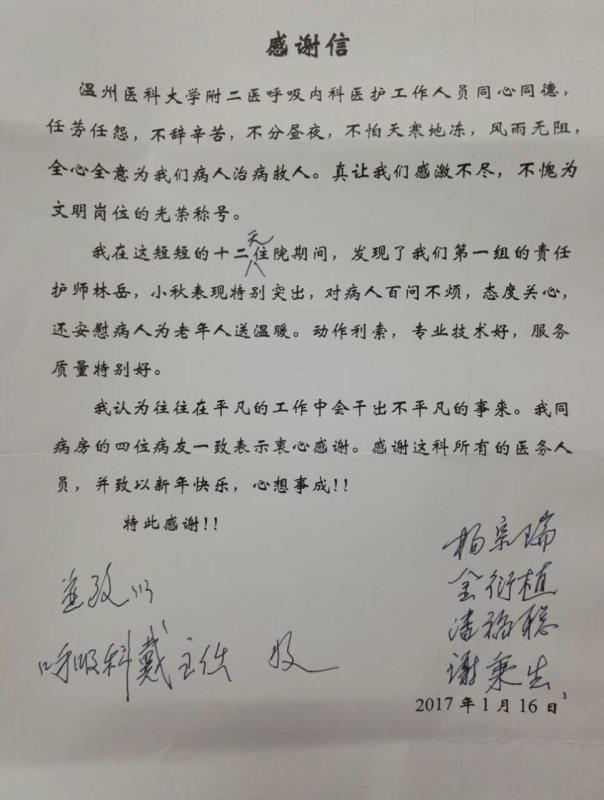 感谢信
温州医科大学附二医呼吸内科医护工作人员同心同德，
任劳任怨，不辞辛苦，不分昼夜，不怕天寒地冻，风雨无阻，
全心全意为我们病人治病救人。真让我们感激不尽，不愧为
文明岗位的光荣称号。
我在这短短的十二天住院期间，发现了我们第一组的责任
护师林岳，小秋表现特别突出，对病人百问不烦，态度关心，
还安慰病人为老年人送温暖。动作利索，专业技术好，服务
质量特别好。
我认为往往在平凡的工作中会干出不平凡的事来。我同
病房的四位病友一致表示衷心感谢。感谢这科所有的医务人
员，并致以新年快乐，心想事成!!
特此感谢!!
并致以
呼吸科戴主任
杨宗瑞
金衍植
潘裕聪
谢秉生
2017年1月16日